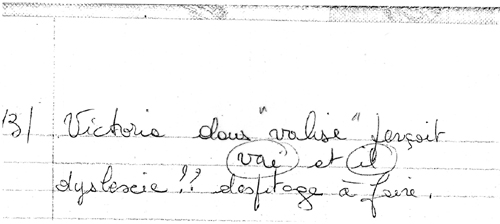 13/ Victoria dans "valise" perçoit
vaï et il
dyslexie !! dépistage à faire.